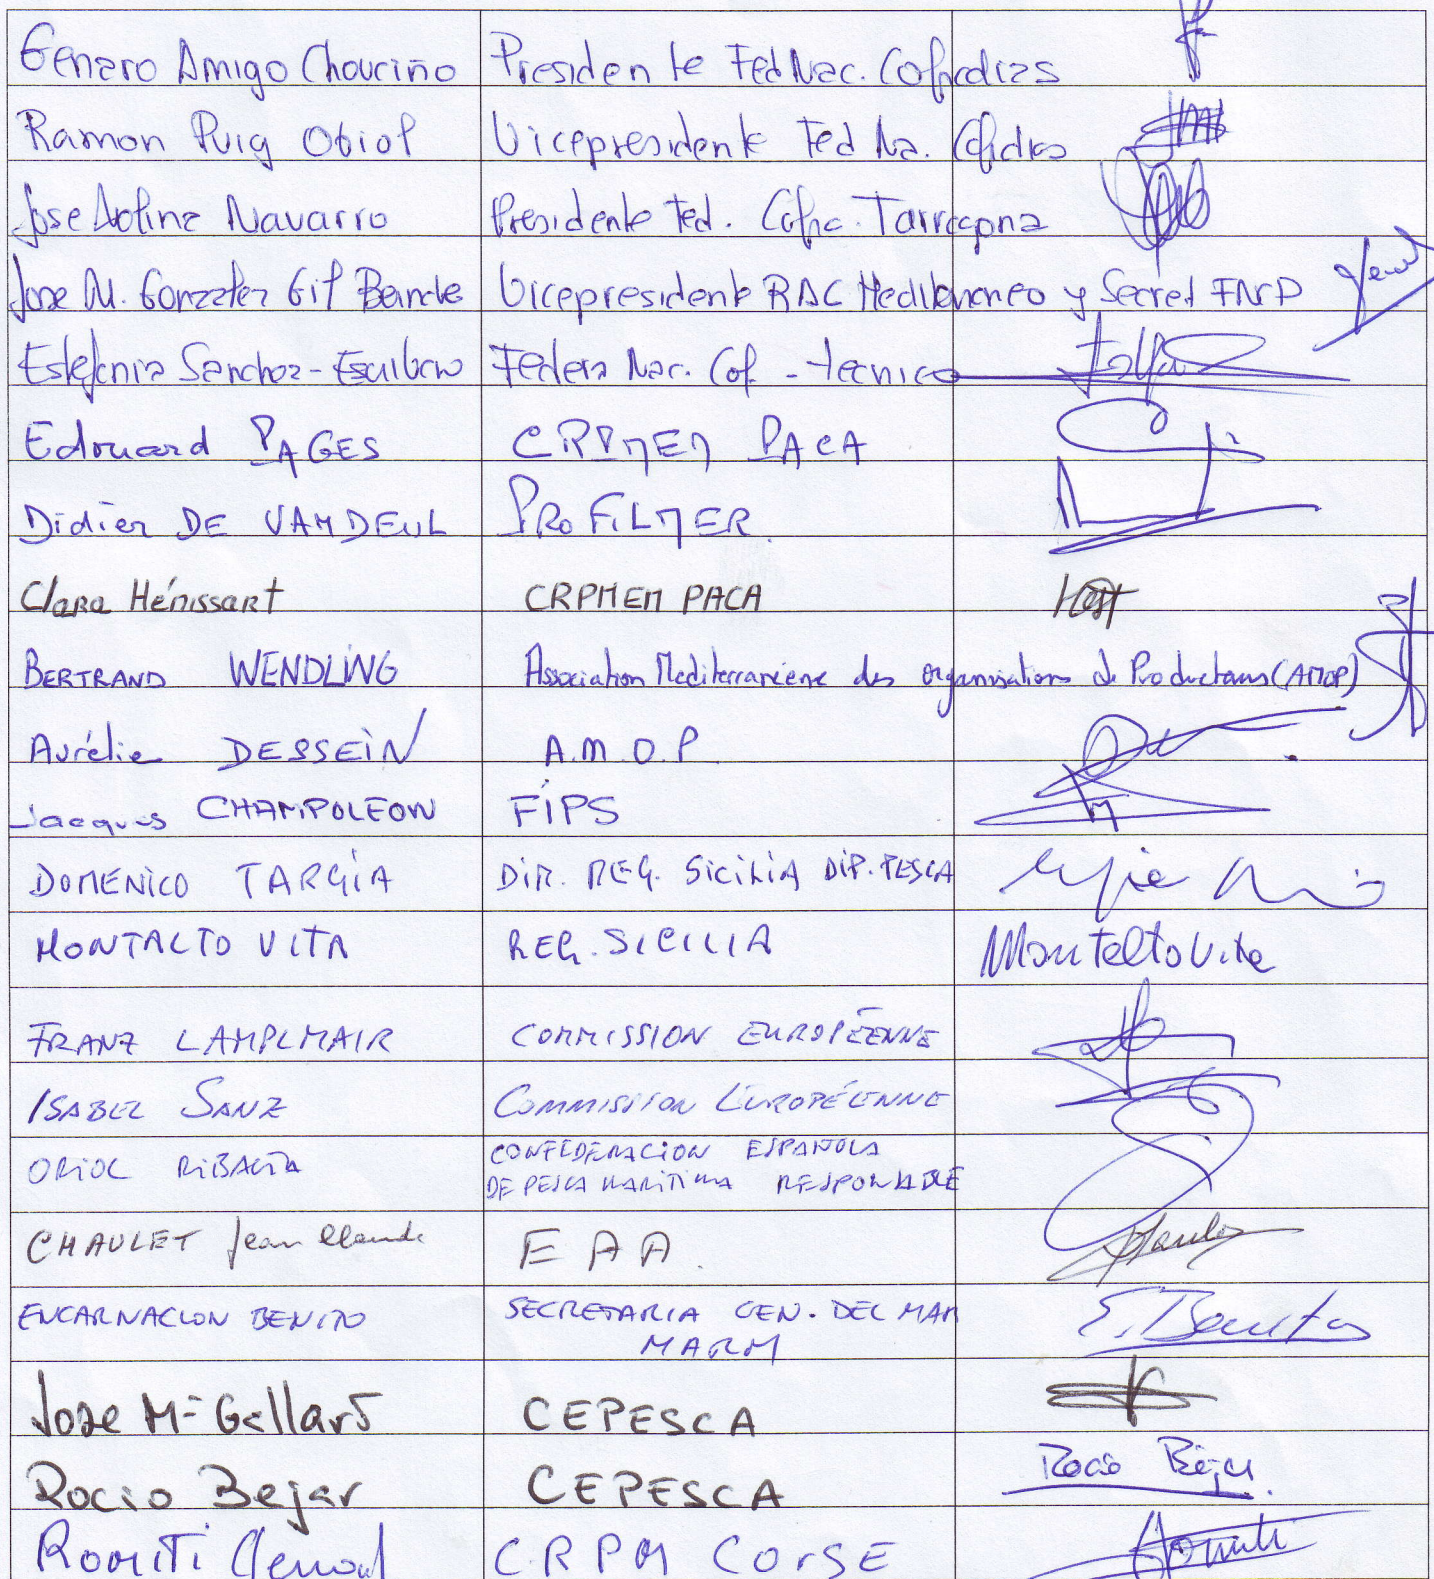 Genaro Amigo Chouciño Presidente Fed Nac. Cofradias
Ramon Puig Obiol Vicepresidente Fed Na. Cofradias
Jose Molina Navarro Presidente Fed. Cofra. Tarragona
Jose M. Gonzalez Gil Bernde Vicepresidente RAC Mediterraneo y Secret FNCP
Estefania Sanchez-Escribano Federa Nac. Cof. - tecnico
Edouard PAGES CRPMEM PACA
Didier DE VANDEUL PROFILMER.
Clara Hénissart CRPMEM PACA
BERTRAND WENDLING Association Mediterranéene des organisations de Producteurs (AMOP)
Aurélie DESSEIN A.M.O.P
Jacques CHAMPOLEON FIPS
DOMENICO TARGIA DIR. REG. SICILIA DIP. PESCA
MONTALTO VITA REG. SICILIA Montalto Vita
FRANZ LAMPLMAIR COMMISSION EUROPÉENNE
ISABEL SANZ COMMISSION EUROPÉENNE
ORIOL RIBALTA CONFEDERACION ESPAÑOLA
DE PESCA MARITIMA RESPONSABLE
CHAULET Jean Claude E A A.
ENCARNACION BENITO SECRETARIA GEN. DEL MAR
MARM E. Benito
Jose Mª Gallart CEPESCA
Rocio Bejar CEPESCA Rocio Béjar
Romiti CRPM CORSE